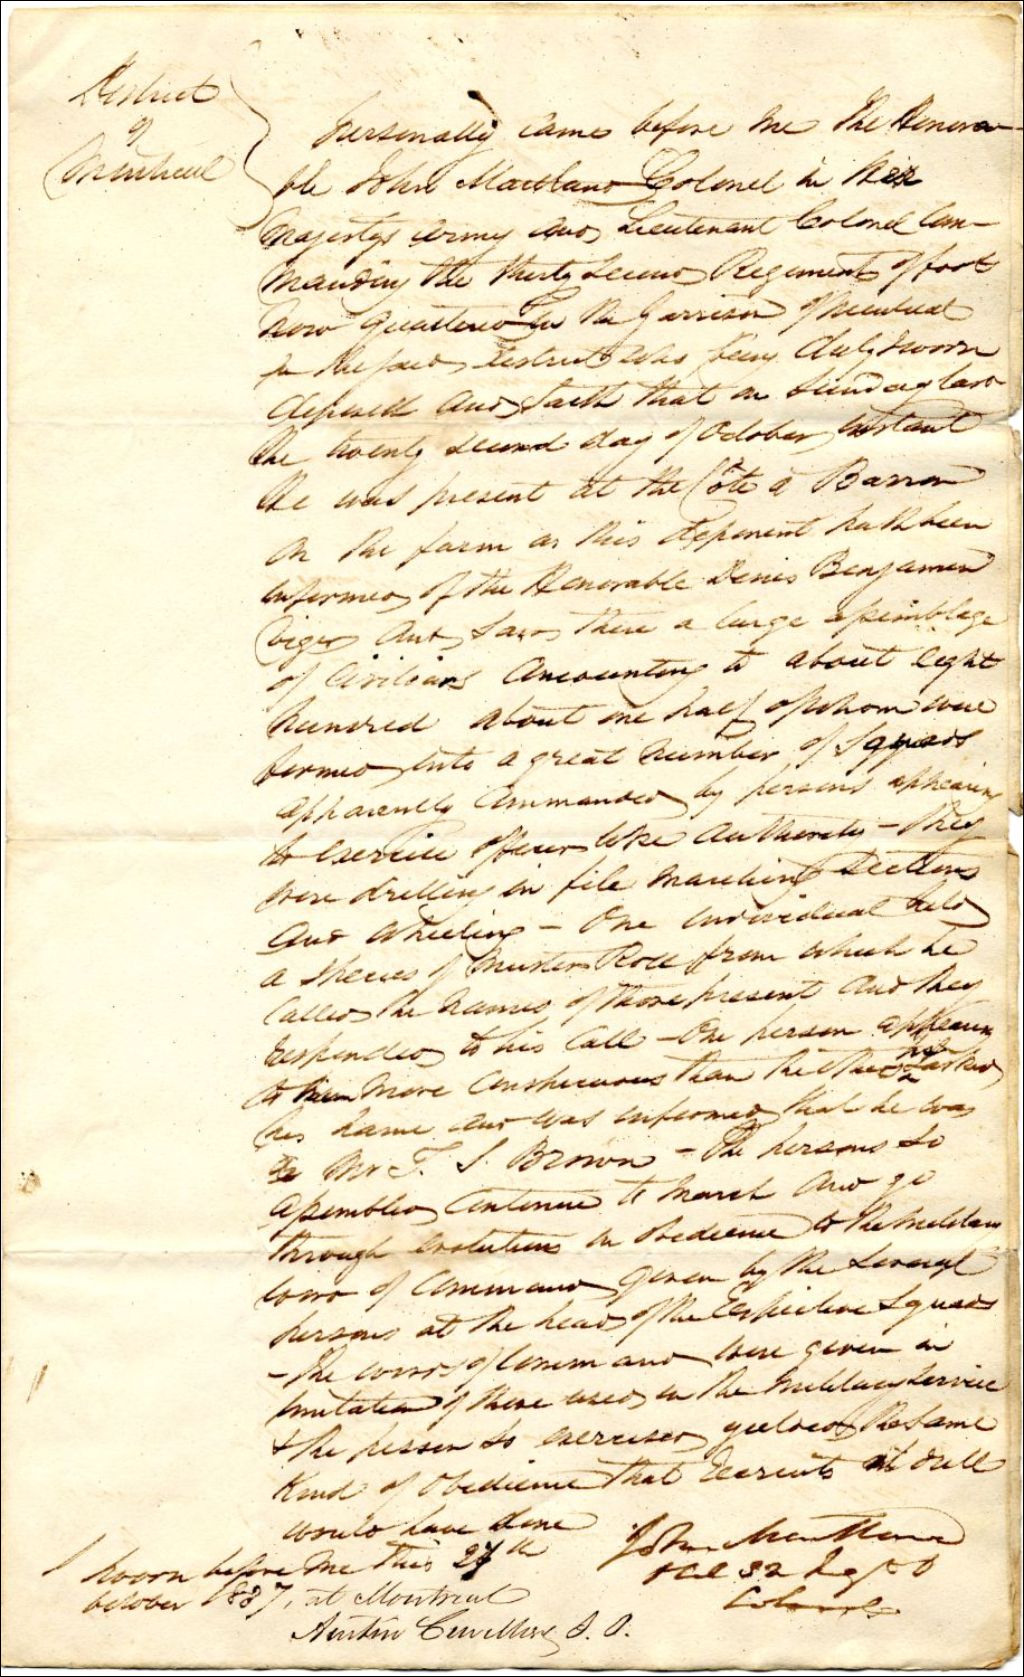 District
of
Montreal
Personally came before me The Honora-
ble John Maitland Colonel in Her
Majestys Army and Lieutenant Colonel Com-
manding the thirty second Regiment of foot
now quartered in the Garrison of Montreal
in the said District who being duly sworn
deposeth and saith that on Sunday last
the twenty second day of October instant
He was present at the Côte à Barron
on the farm as this deponent hath been
informed of the Honorable Denis Benjamin
Viger and saw there a large assemblage
of Civilians amounting to about eight
hundred about one half of whom were
formed into a great number of squads
apparently commanded by persons appearing
to exercise officer like authority – They
were drilling in file marching Sections
and wheeling – One individual held
a species of Muster Roll from which he
called the names of those present and they
responded to his call – One person appearing
to him more conspicuous than the others he asked
his name and was informed that he was
a Mr T. S. Brown – The persons so
assembled continued to march and go
through evolutions in obedience to the military
word of command given by the several
persons at the head of the respective squads
– The words of command were given in
imitation of those used in the military service
& the persons so exercised yielded the same
kind of obedience that recruits at drill
would have done
Sworn before me this 27th
October 1837, at Montreal
Austin Cuvillier J. P.
John Maitland
32 Regt
Colonel